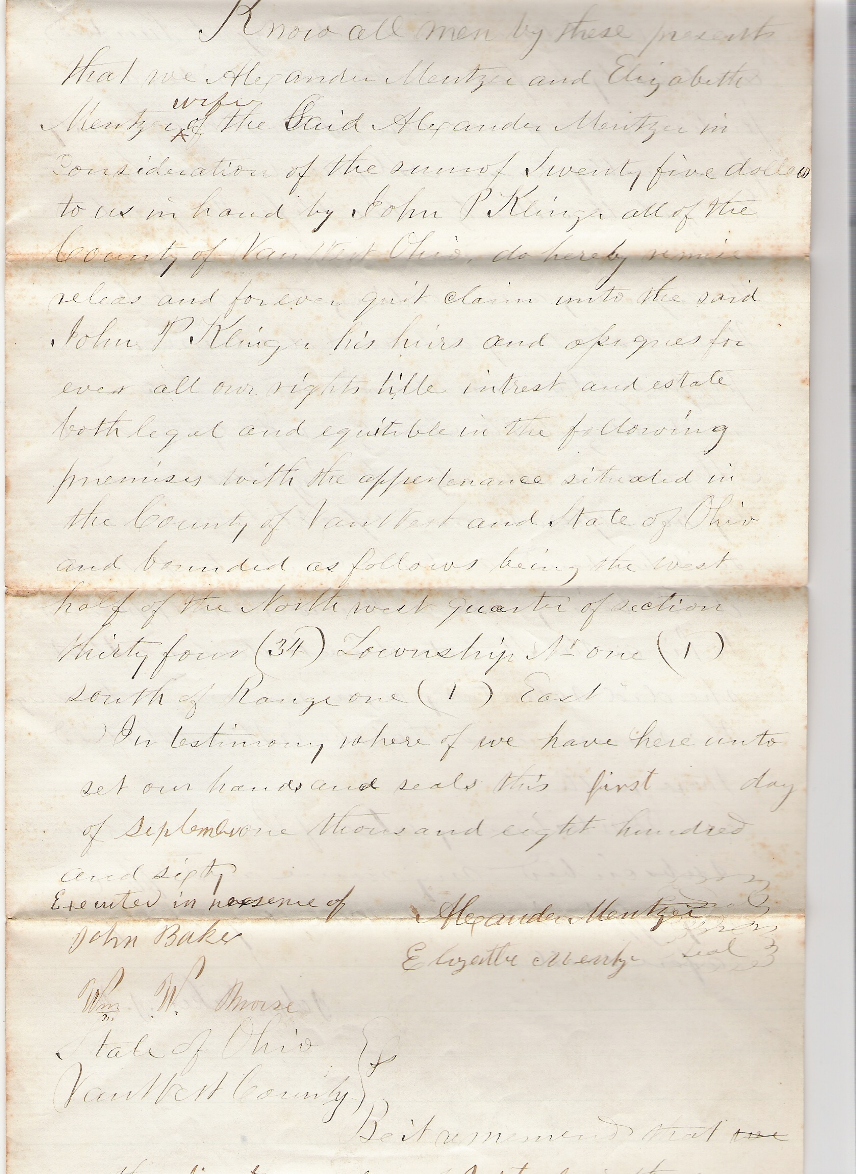 Know all men by these presents
that we Alexander Mentzer and Elizabeth
wife
Mentzer of the Said Alexander Mentzer in
consideration of the sum of Twenty five dollars
to us in hand by John P Klinger all of the
County of VanWert Ohio, do hereby remise
releas and forever quit claim unto the said
John P Klinger his heirs and assignes for
ever all our rights title intrest and estate
both legal and equitible in the following
premises with the appertenance situated in
the County of VanWert and State of Ohio
and bounded as follows being the west
half of the North west quarter of section
thirty four (34) Township No one (1)
south of Range one (1) East
In testimony where of we have here unto
set our hands and seals this first day
of September one thousand eight hundred
and sixty
Executed in presense of
Alexander Mentzer
John Baker
Elizabethe Mentzer seal
Wm. W.
State of Ohio
VanWert County
Be it rememembred that we